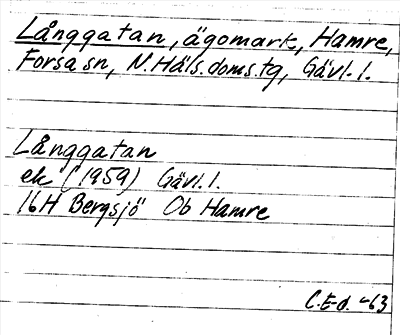 Långgatan, ägomark, Hamre,
Forsa sn, N.Häls.doms.tg, Gävl.l.
Långgatan
ek (1959) Gävl.l.
16H Bergsjö Ob Hamre
C.E-d. -63